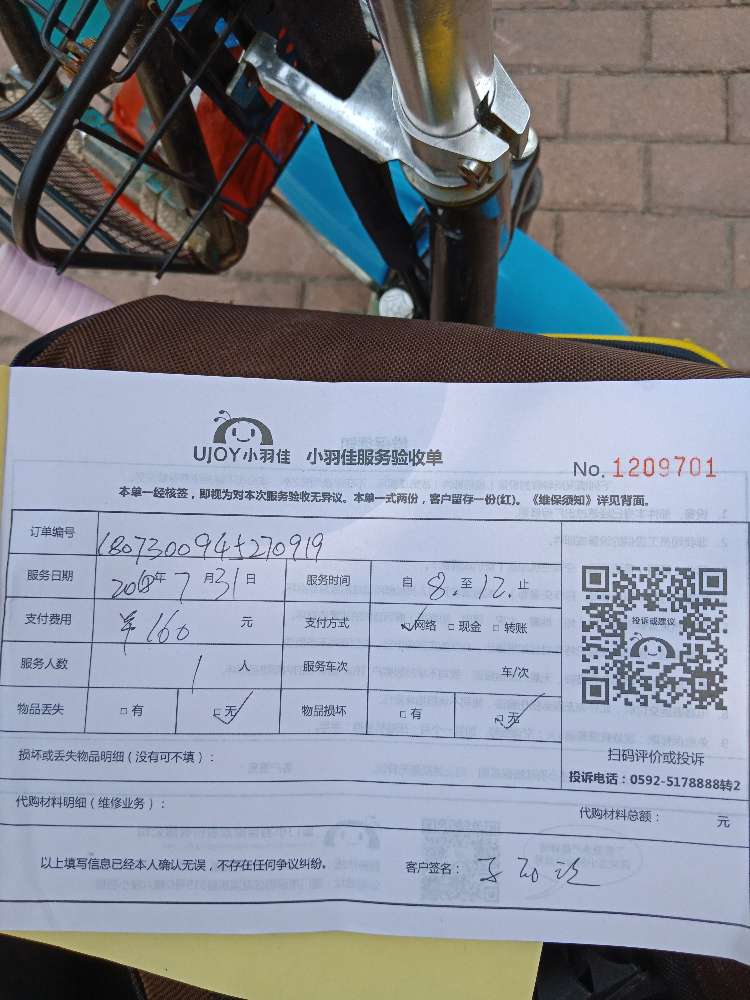 UJOY小羽佳 小羽佳服务验收单
No. 1209701
本单一经核签，即视为对本次服务验收无异议。本单一式两份，客户留存一份(红)。《维保须知》详见背面。
订单编号
服务日期 2018年 7月31日 服务时间 自 8. 至 12. 止
支付费用 ¥160 元 支付方式 ☑网络 □现金 □转账
服务人数 1 人 服务车次 车/次
物品丢失 □有 ☑无 物品损坏 □有 ☑无
投诉或建议
扫码评价或投诉
投诉电话：0592-5178888转2
损坏或丢失物品明细（没有可不填）：
代购材料明细（维修业务）：
代购材料总额： 元
以上填写信息已经本人确认无误，不存在任何争议纠纷。 客户签名：